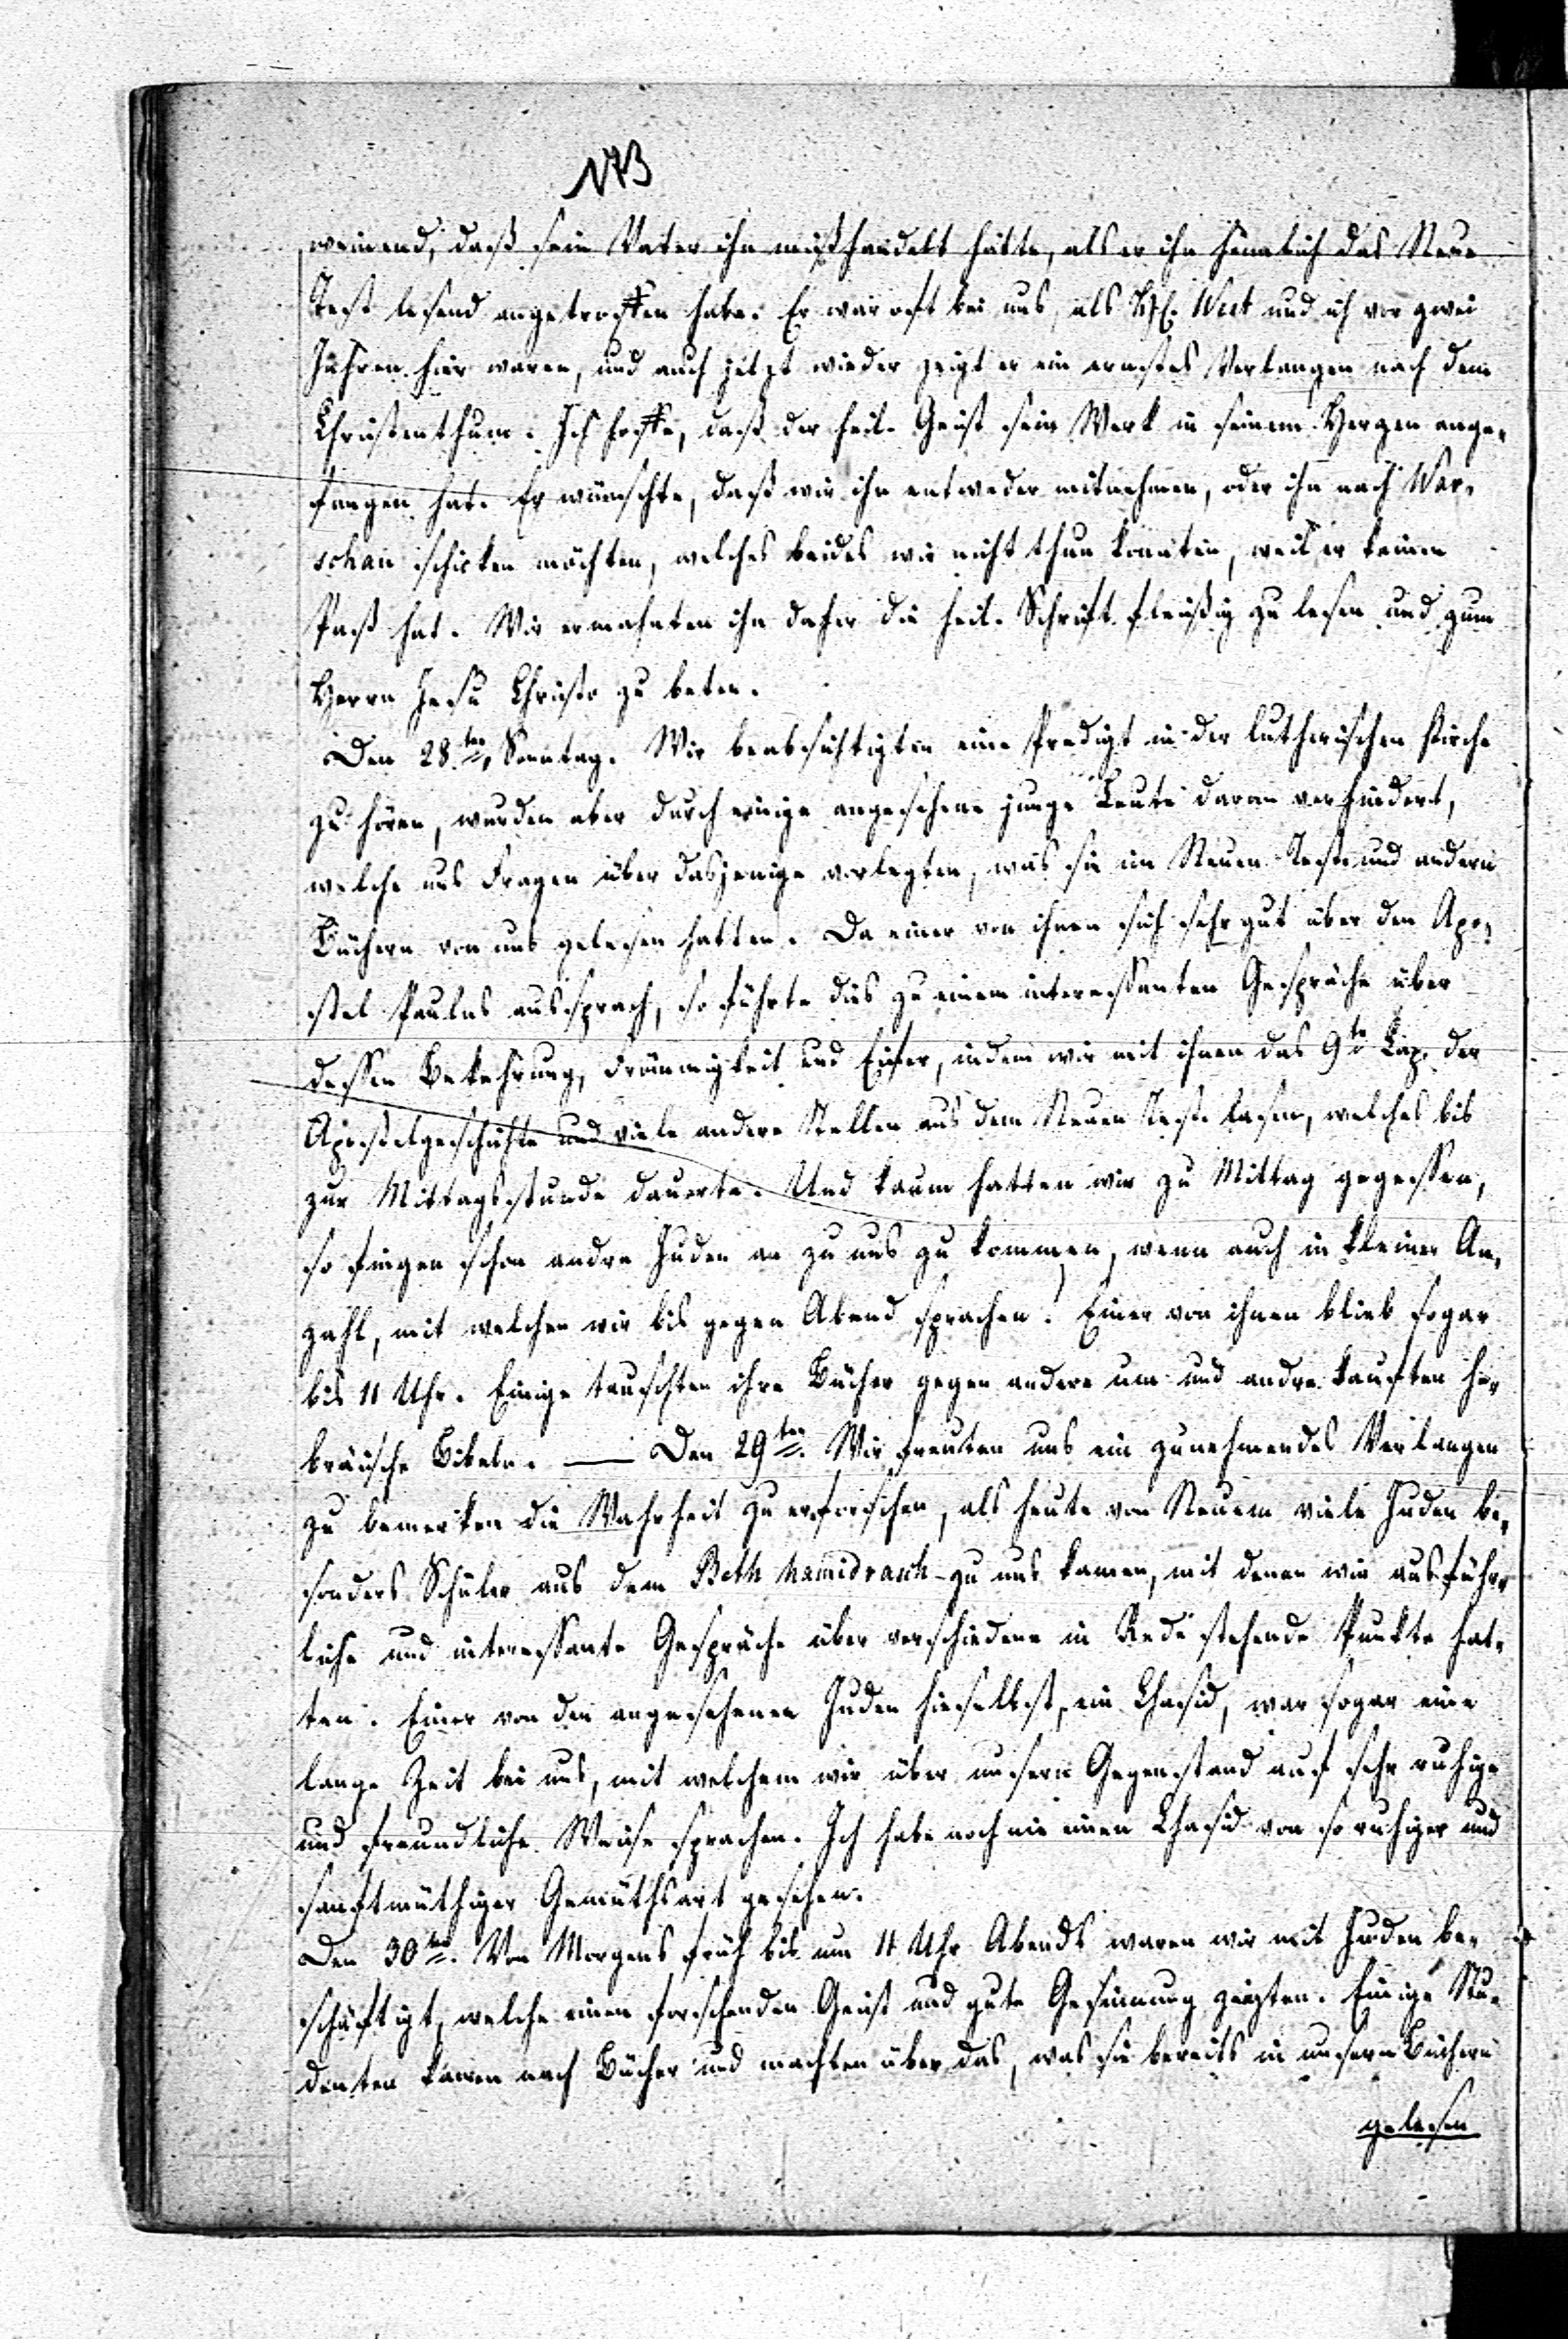 173
weinend, daß sein Vater ihn mißhandelt hätte, als er ihn heimlich das Neue
Test. lesend angetroffen habe. Er war oft bei uns, als H. West und ich vor zwei
Jahren hier waren, und auch jetzt wieder zeigt er ein ernstes Verlangen nach dem
Christenthum. Ich hoffe, daß der heil. Geist sein Werk in seinem Herzen ange-
fangen hat. Er wünschte, daß wir ihn entweder mitnehmen, oder ihn nach War-
schau schicken möchten, welches beides wir nicht thun konnten, weil er keinen
Paß hat. Wir ermahnten ihn daher die heil. Schrift fleißig zu lesen und zum
Herrn Jesu Christo zu beten.
Den 28ten, Sonntag. Wir beabsichtigten eine Predigt in der lutherischen Kirche
zu hören, wurden aber durch einige angesehene junge Leute daran verhindert,
welche uns Fragen über dasjenige vorlegten, was sie im Neuen Test. und andern
Büchern von uns gelesen hatten. Da einer von ihnen sich sehr gut über den Apo-
stel Paulus aussprach, so führte dies zu einem interessanten Gespräche über
dessen Bekehrung, Frömmigkeit und Eifer, indem wir mit ihnen das 9te Cap. der
Apostelgeschichte und viele andere Stellen aus dem Neuen Test. lasen, welches bis
zur Mittagsstunde dauerte. Und kaum hatten wir zu Mittag gegessen,
so fingen schon andre Juden an zu uns zu kommen, wenn auch in kleiner An-
zahl, mit welchen wir bis gegen Abend sprachen. Einer von ihnen blieb sogar
bis 11 Uhr. Einige tauschten ihre Bücher gegen andere um und andre kauften he-
bräische Bibeln. — Den 29ten. Wir freuten uns ein zunehmendes Verlangen
zu bemerken die Wahrheit zu erforschen, als heute von Neuem viele Juden be-
sonders Schüler aus dem Beth hamidrasch zu uns kamen, mit denen wir ausführ-
liche und interessante Gespräche über verschiedene in Rede stehende Punkte hat-
ten. Einer von den angesehenen Juden hieselbst, ein Chasid, war sogar eine
lange Zeit bei uns, mit welchem wir über unsern Gegenstand auf sehr ruhige
und freundliche Weise sprachen. Ich habe noch nie einen Chasid von so ruhiger und
sanftmüthiger Gemüthsart gesehen.
Den 30ten. Von Morgens früh bis um 11 Uhr Abends waren wir mit Juden be-
schäftigt, welche einen forschenden Geist und gute Gesinnung zeigten. Einige Stu-
denten kamen nach Bücher und machten über das, was sie bereits in unsern Büchern
gelesen